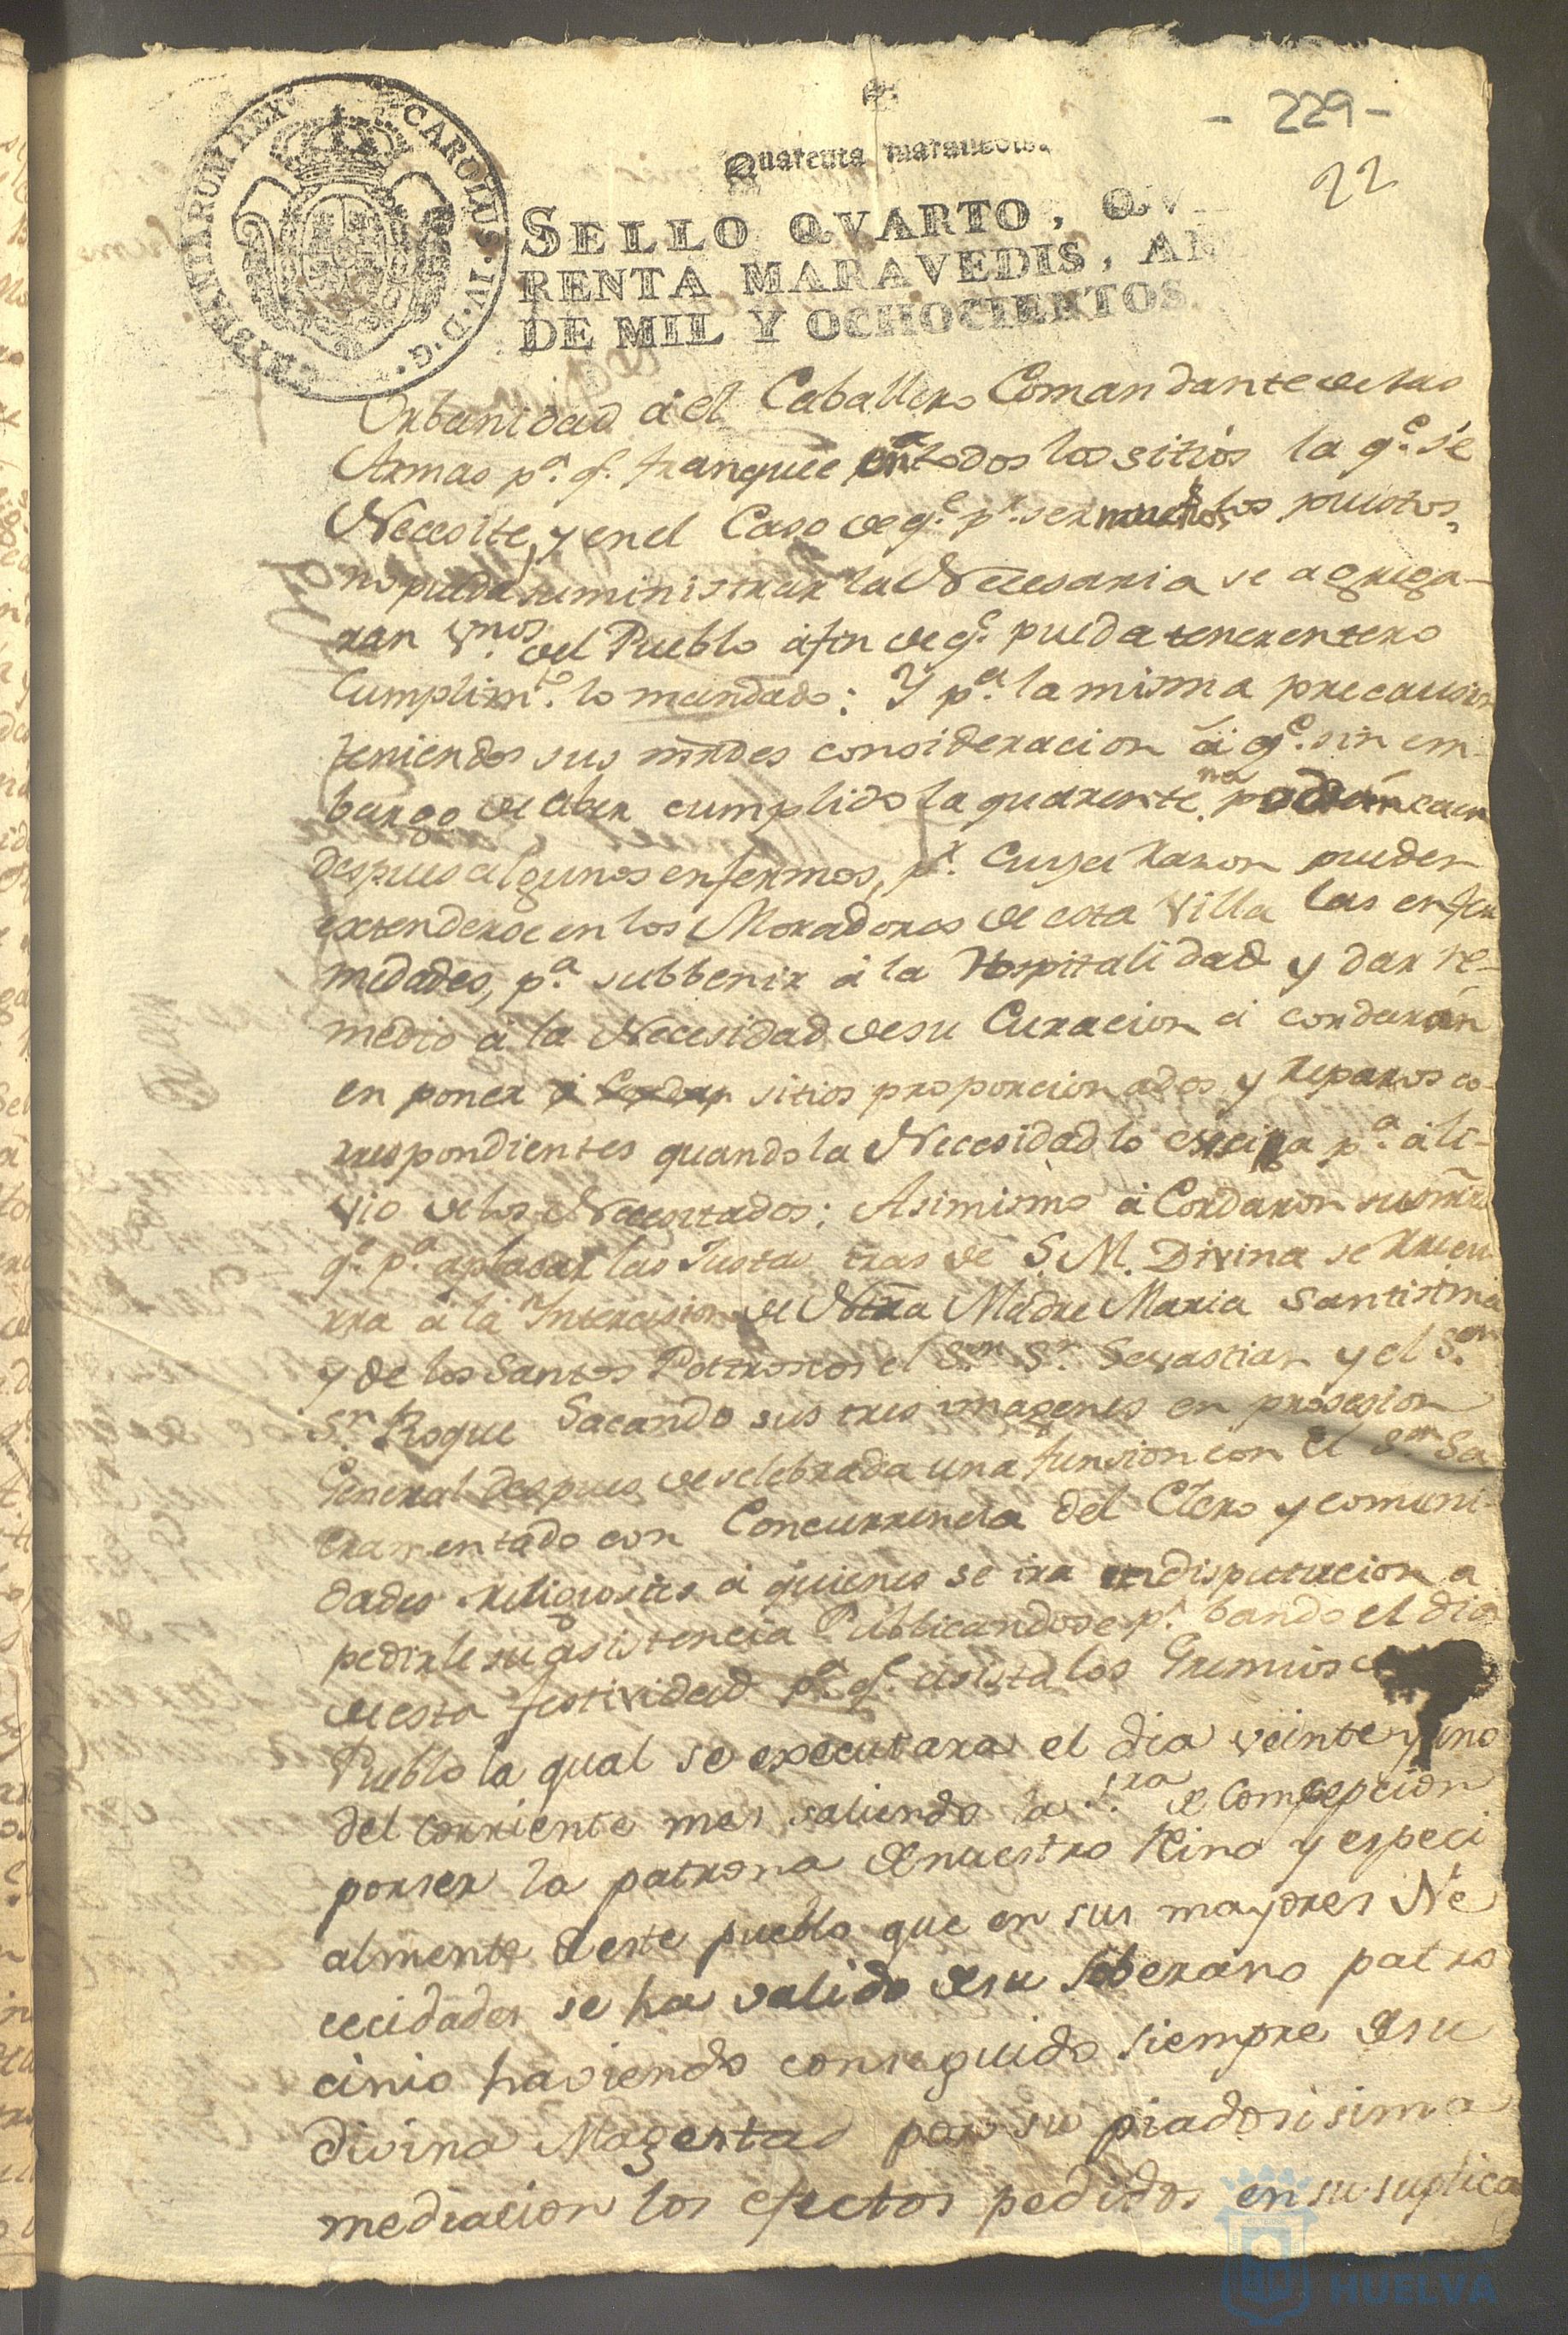 - 229 -
22
Quarenta maravedis.
CAROLUS · IV · D · G · HISPANIAR · REX
SELLO QVARTO, QV
RENTA MARAVEDIS, AÑ
DE MIL Y OCHOCIENTOS.
Urbanidad á el Caballero Comandante de las
Armas pa. q. franquee en todos los sitios la qe. se
Necesite, y en el Caso de qe. pr. ser muchos los puestos,
no pueda suministrar la Necesaria se agrega-
ran Vnos. del Pueblo á fin de qe. pueda tener entero
Cumplimto. lo mandado: Y pa. la misma precaucion
teniendo sus mrdes consideracion á qe. sin em-
bargo de aber cumplido la quarentena. podrán caer
despues algunos enfermos, pr. Cuya razon pueden
extenderse en los Moradores de esta Villa las enfer
medades, pa. subbenir á la Hospitalidad y dar re-
medio á la Necesidad de su Curacion á cordarán
en poner sitios proporcionados y reparos co-
rrespondientes quando la Necesidad lo exsija pa. ali-
vio de los Necesitados: Asimismo á Cordaron sus mrds
qe. pa. aplacar las Justas Iras de S. M. Divina se recu
rra á la Intercesion de Ntra Madre Maria Santisima
y de los Santos Pattronos el Sor. Sn. Sevastian y el Sor.
Sn. Roque Sacando sus tres ymagenes en prosesion
General despues de selebrada una funsion con el Sor. Sa
cramentado con Concurrencia del Clero y comuni-
dades religiosas á quienes se ira en disputacion a
pedirle su asistencia Publicandose pr. bando el dia
de esta festividad pa. q. asista los Gremios
Pueblo la qual se executara el dia veinte y uno
del corriente mes saliendo la Sra. de Comcepcion
por ser la patrona de nuestro Reino y especi
almente de este pueblo que en sus mayores Ne
cecidades se ha valido de su soberano patro
cinio haviendo conseguido siempre de su
divina Magestad por su piadosisima
mediacion los efectos pedidos en su suplica
HUELVA